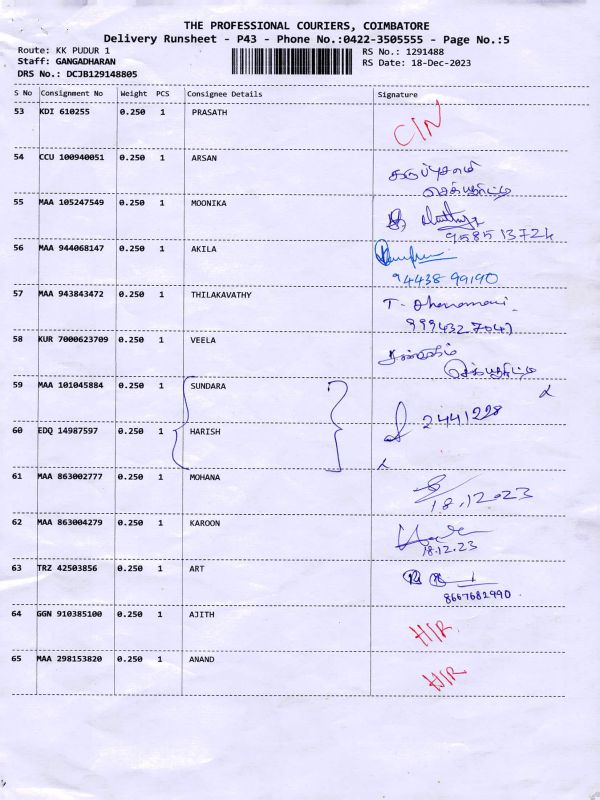 THE PROFESSIONAL COURIERS, COIMBATORE
Delivery Runsheet - P43 - Phone No.:0422-3505555 - Page No.:5
Route: KK PUDUR 1 RS No.: 1291488
Staff: GANGADHARAN RS Date: 18-Dec-2023
DRS No.: DCJB129148805
S No Consignment No Weight PCS Consignee Details Signature
53 KDI 610255 0.250 1 PRASATH CIN
54 CCU 100940051 0.250 1 ARSAN
55 MAA 105247549 0.250 1 MOONIKA
9585513724
56 MAA 944068147 0.250 1 AKILA
94438 99190
57 MAA 943843472 0.250 1 THILAKAVATHY T.
9994327047
58 KUR 7000623709 0.250 1 VEELA
59 MAA 101045884 0.250 1 SUNDARA
2441228
60 EDQ 14987597 0.250 1 HARISH
61 MAA 863002777 0.250 1 MOHANA
18.12.2023
62 MAA 863004279 0.250 1 KAROON
18.12.23
63 TRZ 42503856 0.250 1 ART
8667682990.
64 GGN 910385100 0.250 1 AJITH HIR
65 MAA 298153820 0.250 1 ANAND HIR